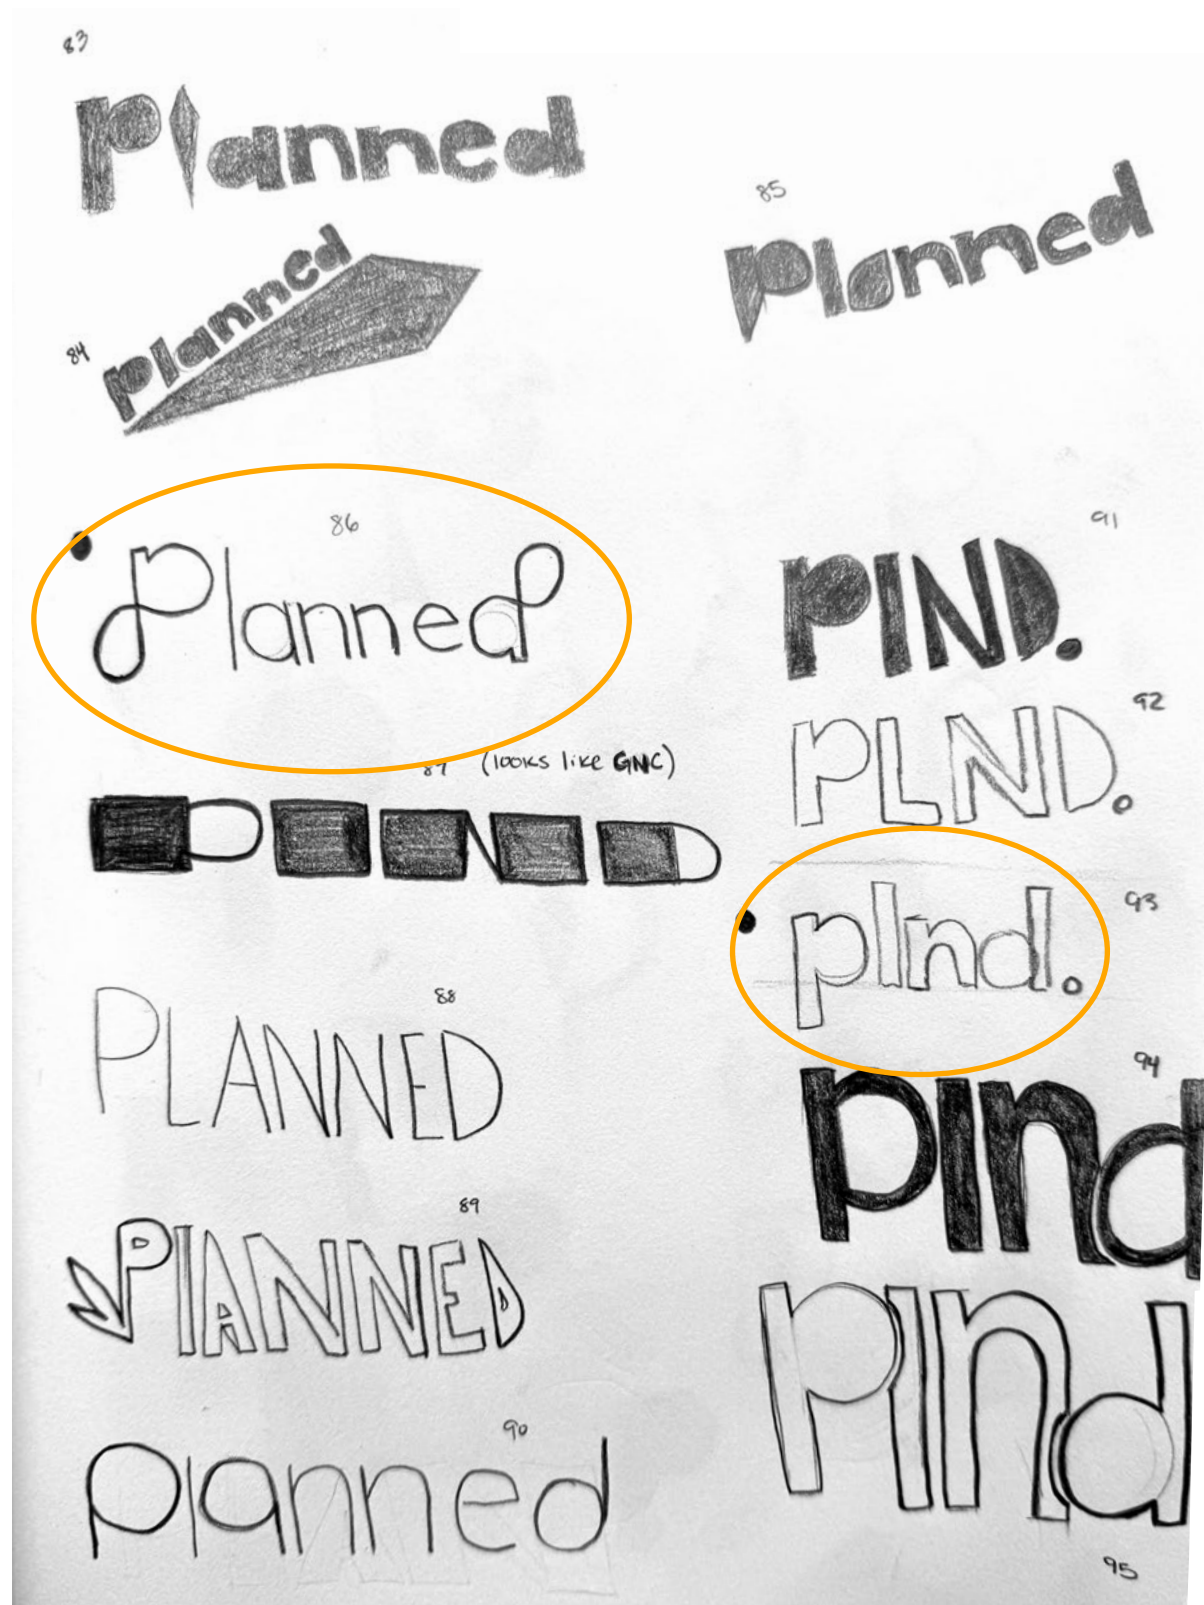 83
Planned
84
Planned
85
Planned
86
Planned
87 (looks like GNC)
88
PLANNED
89
PlANNED
90
Planned
91
PlND.
92
PLND.
93
plnd.
94
plnd
plnd
95